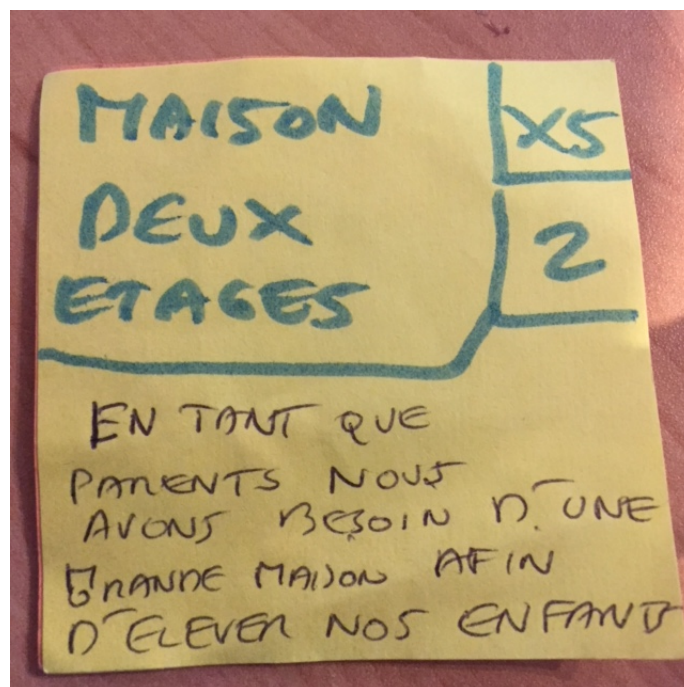 MAISON
X5
DEUX
2
ETAGES
EN TANT QUE
PARENTS NOUS
AVONS BESOIN D'UNE
GRANDE MAISON AFIN
D'ELEVER NOS ENFANTS